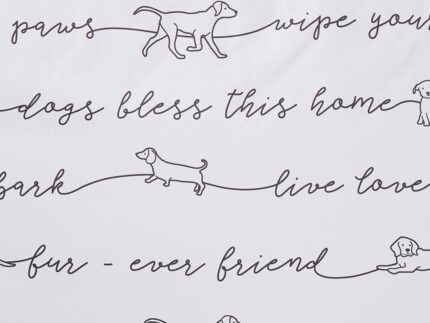 paws wipe your
dogs bless this home
bark live love
fur - ever friend